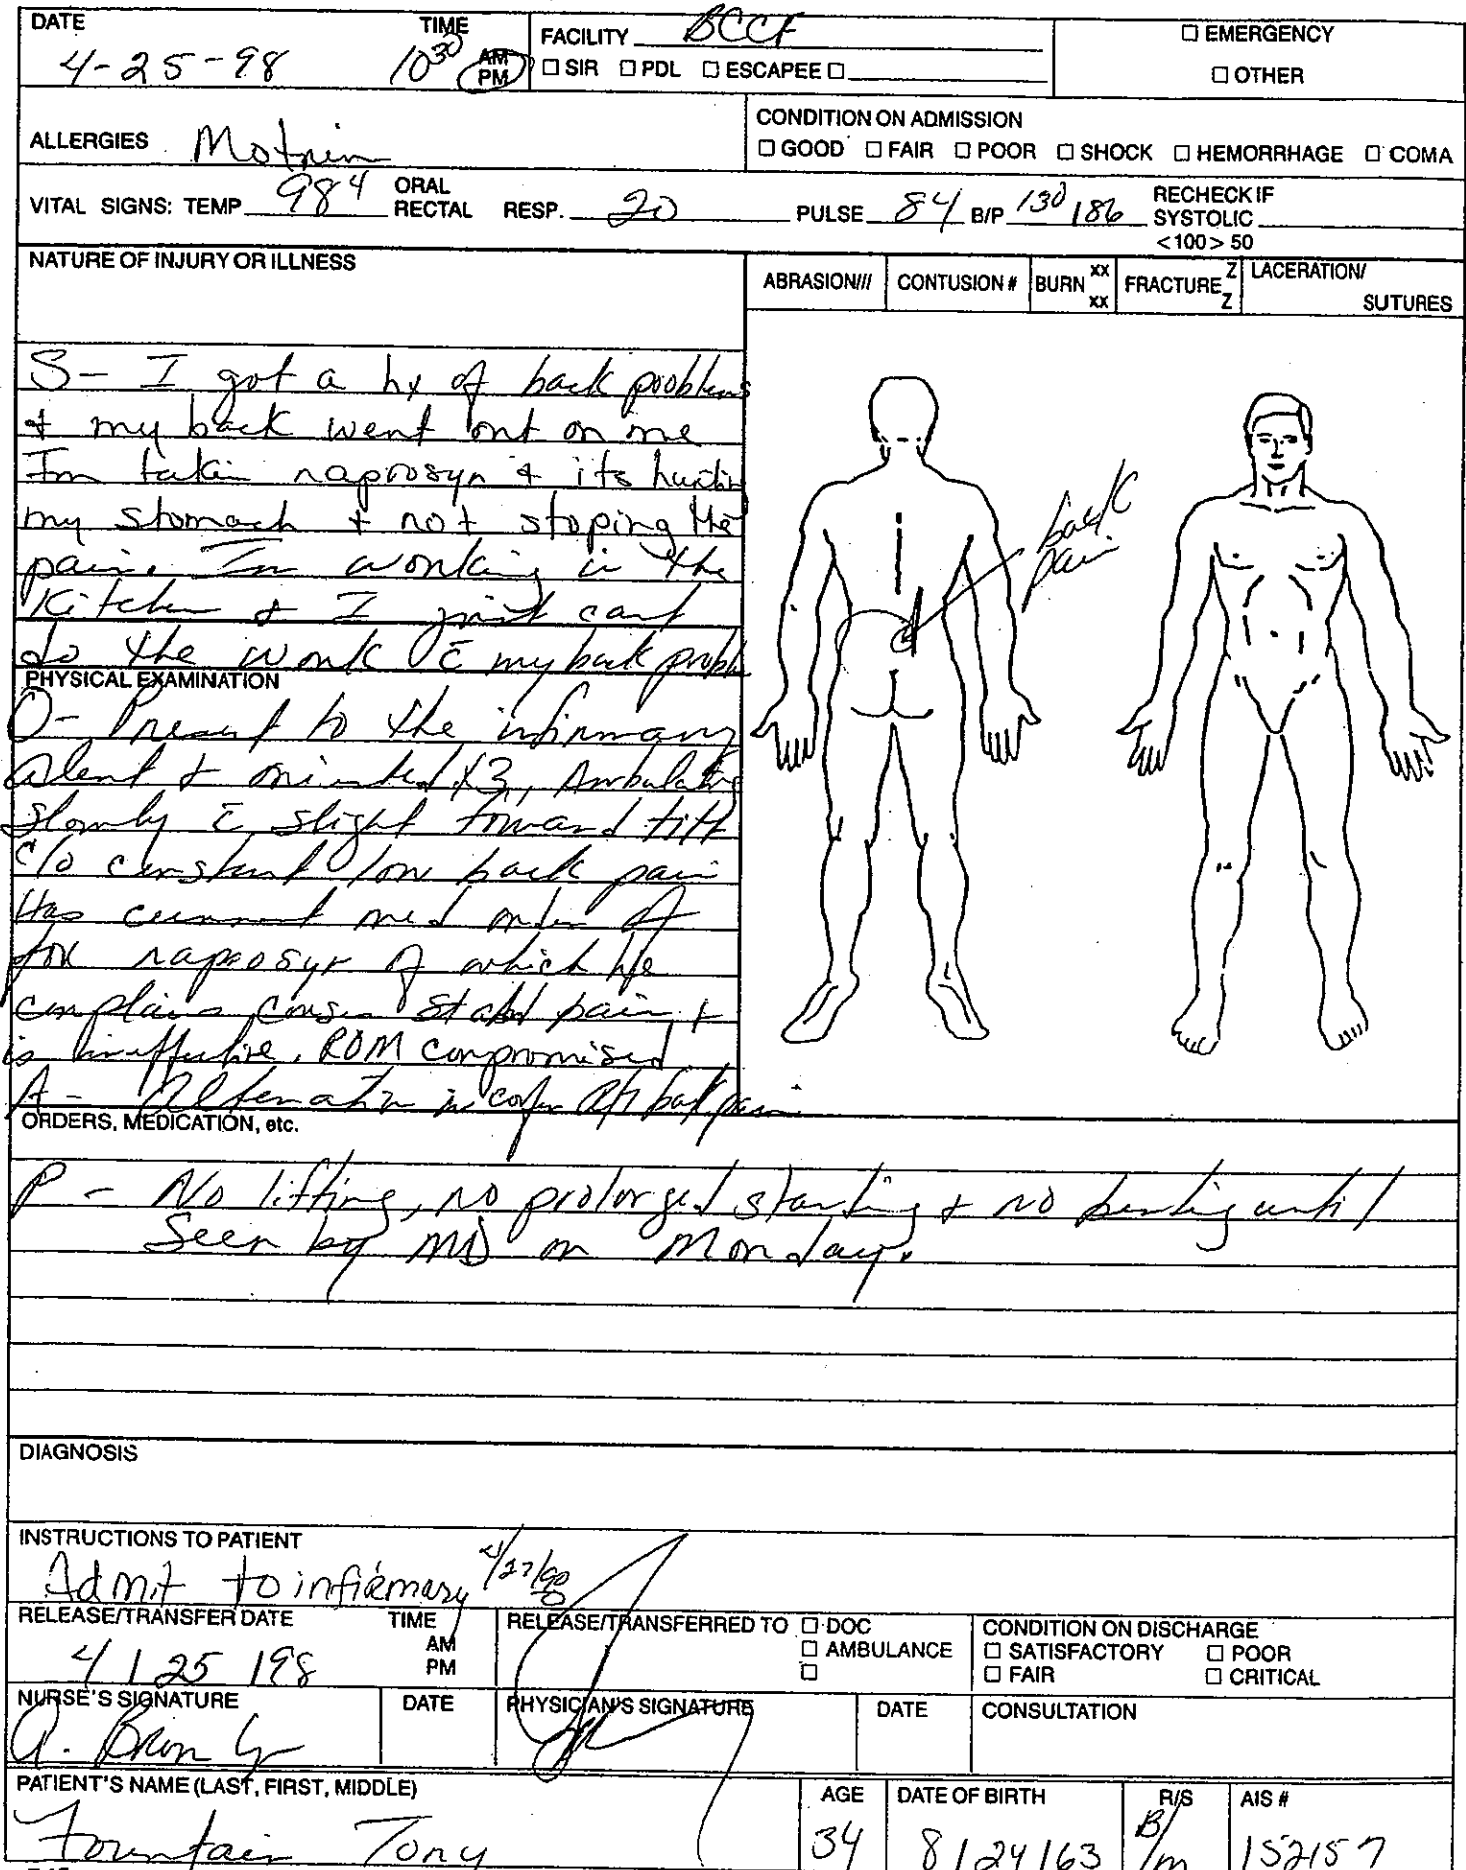 DATE TIME FACILITY BCCF □ EMERGENCY
4-25-98 10³⁰ AM PM □ SIR □ PDL □ ESCAPEE □ □ OTHER
ALLERGIES Motrin CONDITION ON ADMISSION
□ GOOD □ FAIR □ POOR □ SHOCK □ HEMORRHAGE □ COMA
VITAL SIGNS: TEMP 98⁴ ORAL RECTAL RESP. 20 PULSE 84 B/P 130/86 RECHECK IF SYSTOLIC
<100> 50
NATURE OF INJURY OR ILLNESS
ABRASION/// CONTUSION # BURN xx xx FRACTURE Z Z LACERATION/ SUTURES
S- I got a hx of back problems
+ my back went out on me
Im takin naprosyn + its hurtin
my stomach + not stoping the
pain. Im working in the
Kitchen + I just cant
do the work c̄ my back
back pain
PHYSICAL EXAMINATION
O- Present to the infirmary
alert + oriented x3, Ambulating
slowly c̄ slight forward tilt
c/o constant low back pain
Has current med order
for naprosyn of which he
complains pain +
is ineffective, ROM compromised
A- Alteration in back pain
ORDERS, MEDICATION, etc.
P - No lifting, no prolonged standing + no bending until
Seen by MD on Monday.
DIAGNOSIS
INSTRUCTIONS TO PATIENT
Admit to infirmary
RELEASE/TRANSFER DATE TIME RELEASE/TRANSFERRED TO □ DOC CONDITION ON DISCHARGE
AM □ AMBULANCE □ SATISFACTORY □ POOR
4/25/98 PM □ □ FAIR □ CRITICAL
NURSE'S SIGNATURE DATE PHYSICIAN'S SIGNATURE DATE CONSULTATION
PATIENT'S NAME (LAST, FIRST, MIDDLE) AGE DATE OF BIRTH R/S AIS #
Fountain Tony 34 8/24/63 B/m 152157